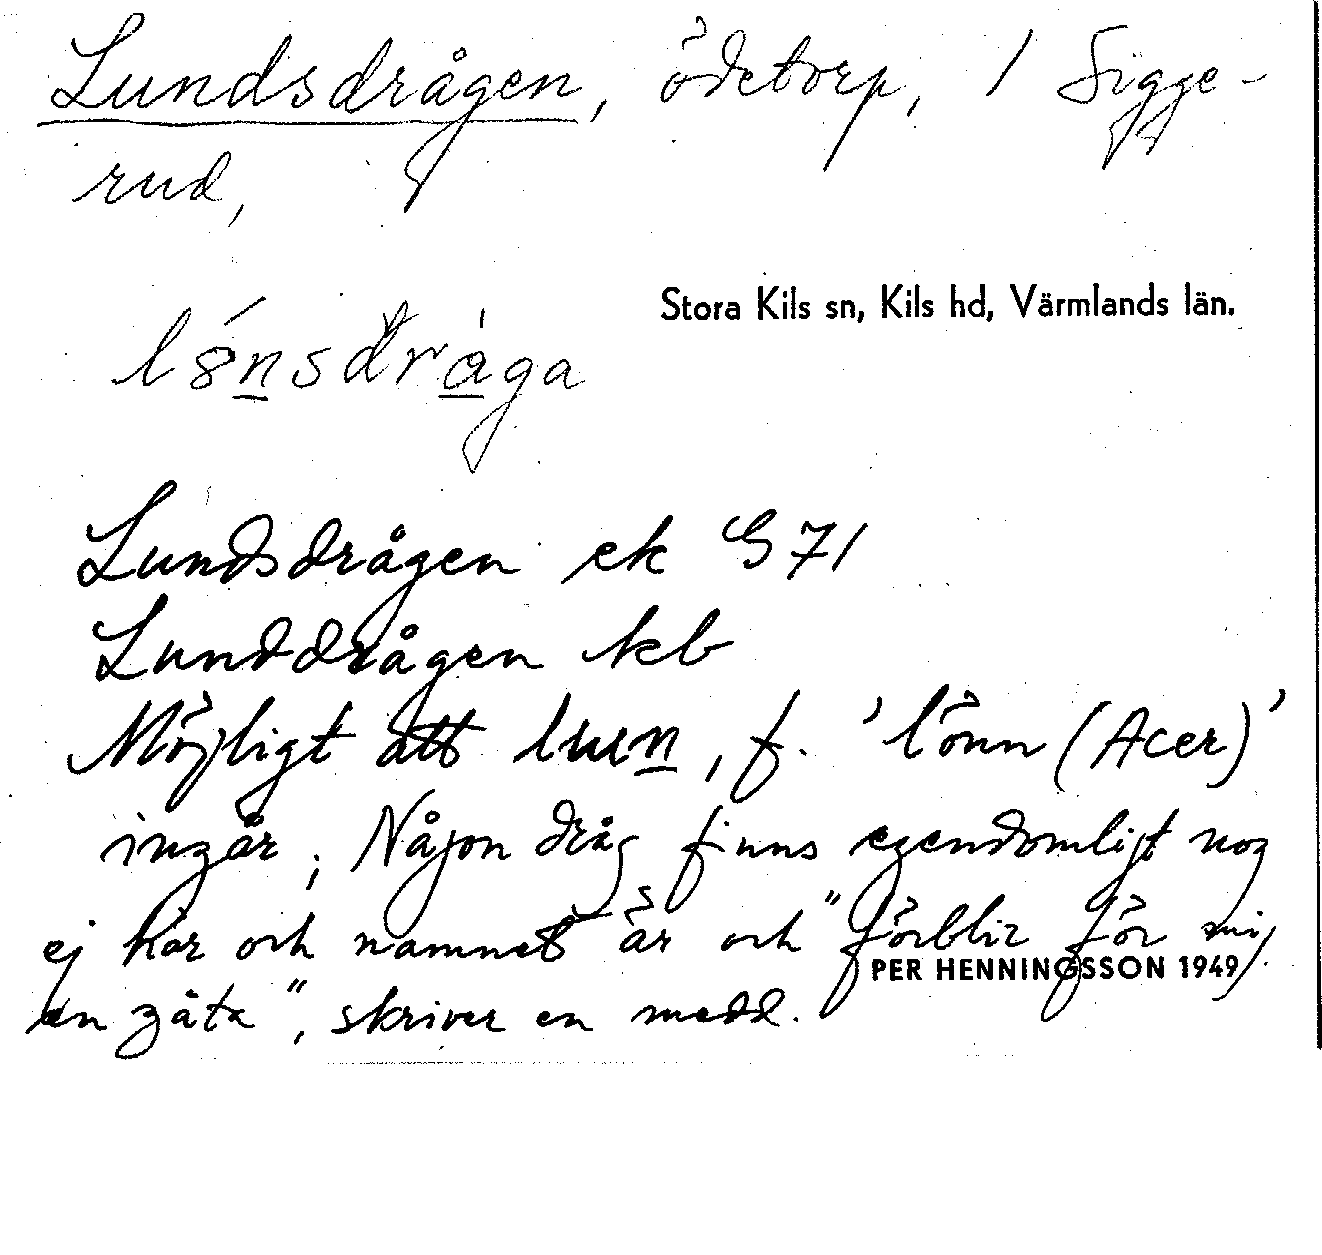 Lundsdrågen, ödetorp, / Sigge-
rud,
Stora Kils sn, Kils hd, Värmlands län.
Lundsdrågen ek G 71
Lunddrågen kb
Möjligt att luun, f. 'lönn (Acer)'
ingår; Någon dråg finns egendomligt nog
ej här och namnet är och "förblir för mig
PER HENNINGSSON 1949
en gåta", skriver en medd.